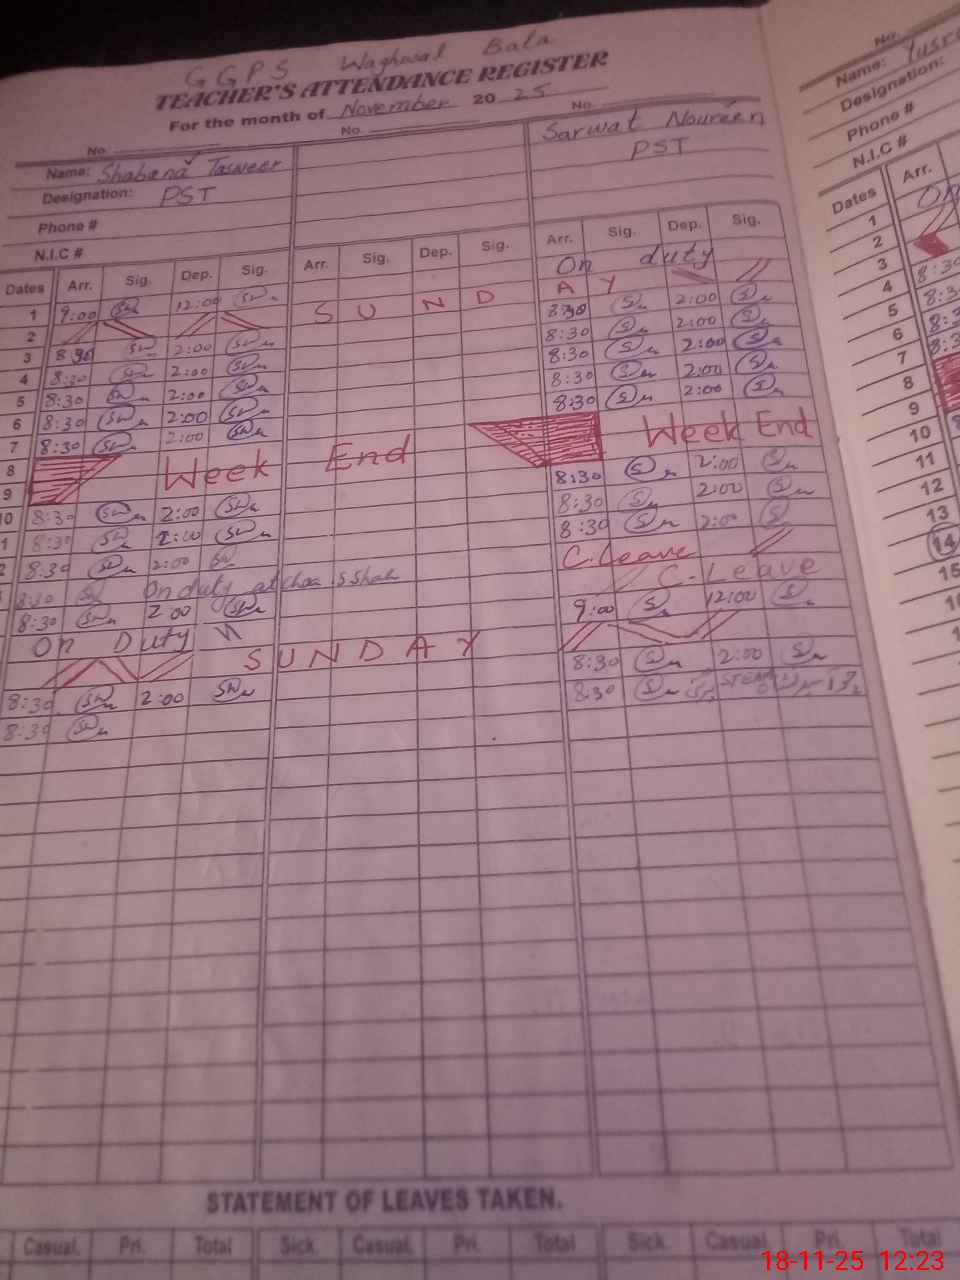 GGPS Waghwal Bala
TEACHER'S ATTENDANCE REGISTER
For the month of November 20 25
No. No. No.
Name: Shabana Tasweer Sarwat Noureen
Designation: PST PST
Phone #
N.I.C #
Dates Arr. Sig. Dep. Sig. Arr. Sig. Dep. Sig. Arr. Sig. Dep. Sig.
1 9:00 SW 12:00 SW On duty
2 S U N D A Y
3 8:30 SW 2:00 SW 8:30 S 2:00 S
4 8:30 SW 2:00 SW 8:30 S 2:00 S
5 8:30 SW 2:00 SW 8:30 S 2:00 S
6 8:30 SW 2:00 SW 8:30 S 2:00 S
7 8:30 SW 2:00 SW 8:30 S 2:00 S
8 Week End Week End
9
10 8:30 SW 2:00 SW 8:30 S 2:00 S
1 8:30 SW 2:00 SW 8:30 S 2:00 S
2 8:30 SW 2:00 SW 8:30 S 2:00 S
8:30 On duty at S Shah C. Leave
8:30 SW 2:00 SW C. Leave
On Duty 9:00 S 12:00 S
S U N D A Y
8:30 SW 2:00 SW 8:30 S 2:00 S
8:30 SW 8:30 S
STATEMENT OF LEAVES TAKEN.
Casual. Pri. Total Sick. Casual. Pri. Total Sick. Casual. Pri. Total
No.
Name: Yusra
Designation:
Phone #
N.I.C #
Dates Arr.
1 On
2
3 8:30
4 8:3
5 8:3
6 8:3
7
8
9
10
11
12
13
14
15
18-11-25 12:23